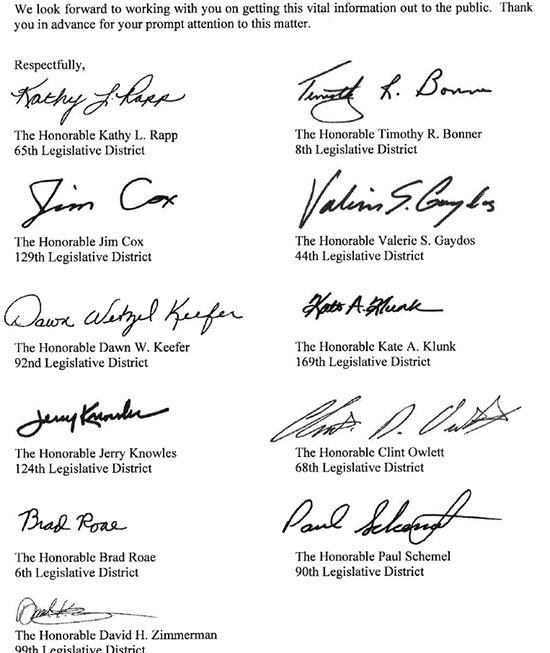 We look forward to working with you on getting this vital information out to the public. Thank
you in advance for your prompt attention to this matter.
Respectfully,
Kathy L. Rapp
Timothy R. Bonner
The Honorable Kathy L. Rapp
65th Legislative District
The Honorable Timothy R. Bonner
8th Legislative District
Jim Cox
Valerie S. Gaydos
The Honorable Jim Cox
129th Legislative District
The Honorable Valerie S. Gaydos
44th Legislative District
Dawn Wetzel Keefer
Kate A. Klunk
The Honorable Dawn W. Keefer
92nd Legislative District
The Honorable Kate A. Klunk
169th Legislative District
Jerry Knowles
Clint D. Owlett
The Honorable Jerry Knowles
124th Legislative District
The Honorable Clint Owlett
68th Legislative District
Brad Roae
Paul Schemel
The Honorable Brad Roae
6th Legislative District
The Honorable Paul Schemel
90th Legislative District
The Honorable David H. Zimmerman
99th Legislative District